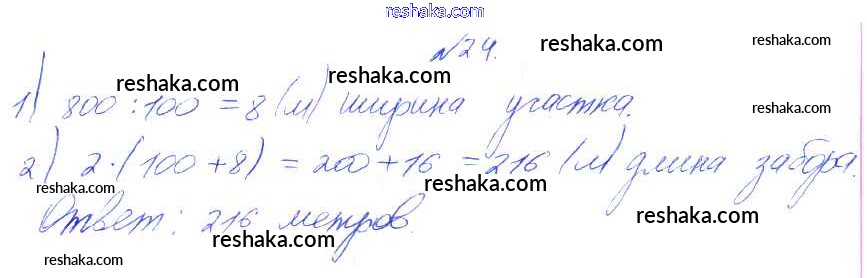 reshaka.com
№24.
reshaka.com
reshaka.com
reshaka.com reshaka.com
1) 800 : 100 = 8 (м) ширина участка.
reshaka.com
2) 2·(100 + 8) = 200 + 16 = 216 (м) длина забора.
reshaka.com
reshaka.com
reshaka.com
Ответ: 216 метров.
reshaka.com
reshaka.com
reshaka.com